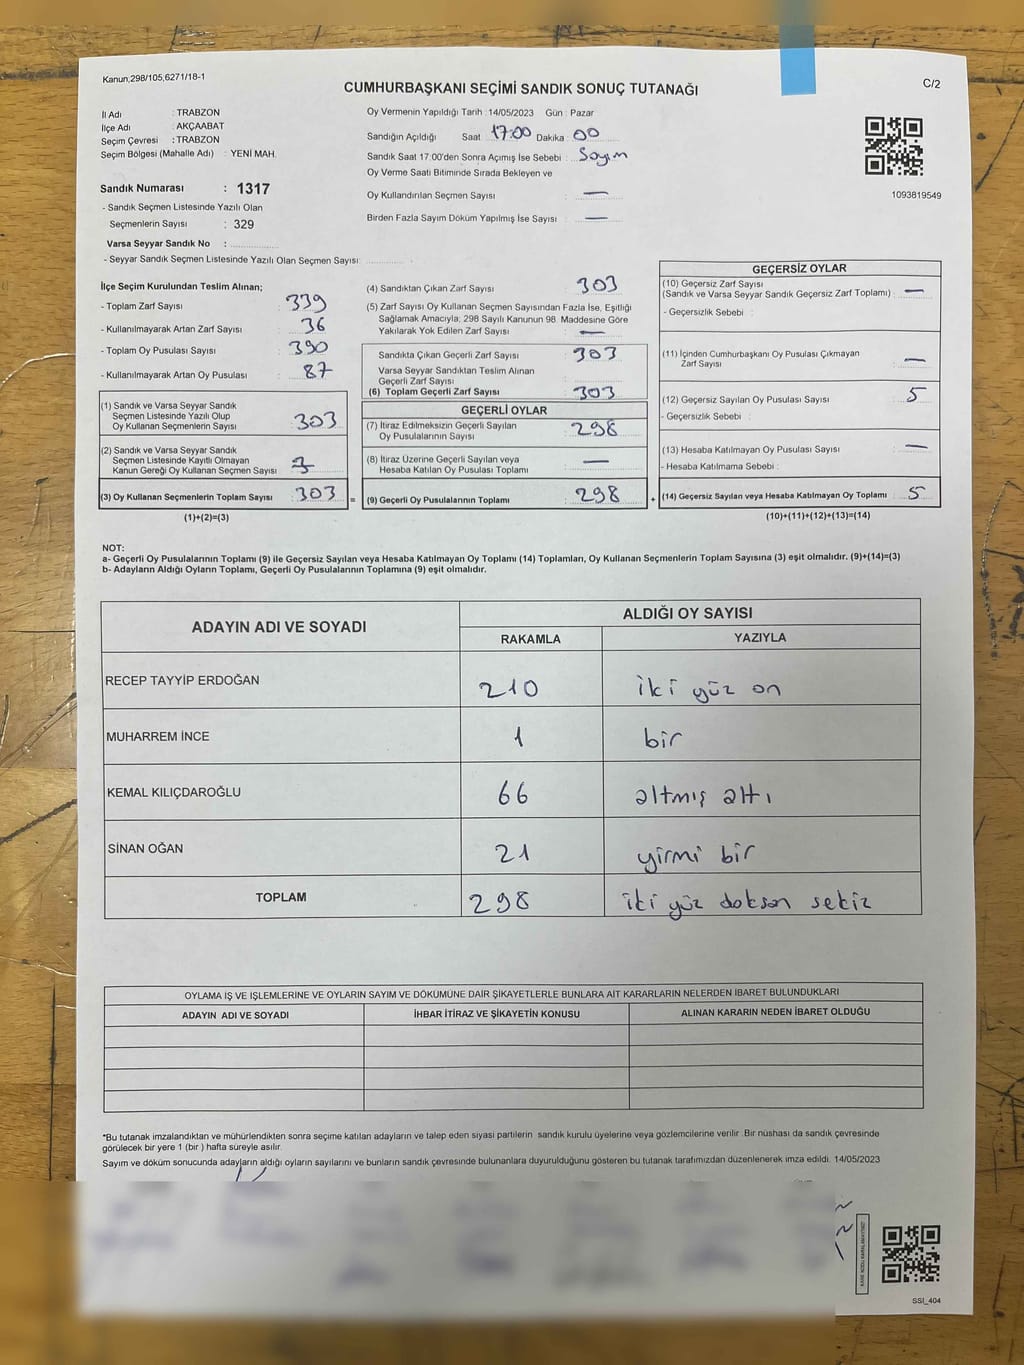 Kanun,298/105,6271/18-1
CUMHURBAŞKANI SEÇİMİ SANDIK SONUÇ TUTANAĞI
C/2
İl Adı : TRABZON
İlçe Adı : AKÇAABAT
Seçim Çevresi : TRABZON
Seçim Bölgesi (Mahalle Adı) : YENİ MAH.
Oy Vermenin Yapıldığı Tarih :14/05/2023 Gün : Pazar
Sandığın Açıldığı Saat : 17:00 Dakika : 00
Sandık Saat 17:00'den Sonra Açımış İse Sebebi : Sayım
Oy Verme Saati Bitiminde Sırada Bekleyen ve
Oy Kullandırılan Seçmen Sayısı : —
Birden Fazla Sayım Döküm Yapılmış İse Sayısı : —
1093819549
Sandık Numarası : 1317
- Sandık Seçmen Listesinde Yazılı Olan
Seçmenlerin Sayısı : 329
Varsa Seyyar Sandık No :
- Seyyar Sandık Seçmen Listesinde Yazılı Olan Seçmen Sayısı:
İlçe Seçim Kurulundan Teslim Alınan;
- Toplam Zarf Sayısı : 339
- Kullanılmayarak Artan Zarf Sayısı : 36
- Toplam Oy Pusulası Sayısı : 390
- Kullanılmayarak Artan Oy Pusulası : 87
(1) Sandık ve Varsa Seyyar Sandık
Seçmen Listesinde Yazılı Olup
Oy Kullanan Seçmenlerin Sayısı : 303
(2) Sandık ve Varsa Seyyar Sandık
Seçmen Listesinde Kayıtlı Olmayan
Kanun Gereği Oy Kullanan Seçmen Sayısı :
(3) Oy Kullanan Seçmenlerin Toplam Sayısı : 303 =
(1)+(2)=(3)
(4) Sandıktan Çıkan Zarf Sayısı : 303
(5) Zarf Sayısı Oy Kullanan Seçmen Sayısından Fazla İse, Eşitliği
Sağlamak Amacıyla; 298 Sayılı Kanunun 98. Maddesine Göre
Yakılarak Yok Edilen Zarf Sayısı : —
Sandıkta Çıkan Geçerli Zarf Sayısı : 303
Varsa Seyyar Sandıktan Teslim Alınan
Geçerli Zarf Sayısı :
(6) Toplam Geçerli Zarf Sayısı : 303
GEÇERLİ OYLAR
(7) İtiraz Edilmeksizin Geçerli Sayılan
Oy Pusulalarının Sayısı : 298
(8) İtiraz Üzerine Geçerli Sayılan veya
Hesaba Katılan Oy Pusulası Toplamı : —
(9) Geçerli Oy Pusulalarının Toplamı : 298 +
GEÇERSİZ OYLAR
(10) Geçersiz Zarf Sayısı
(Sandık ve Varsa Seyyar Sandık Geçersiz Zarf Toplamı) : —
- Geçersizlik Sebebi :
(11) İçinden Cumhurbaşkanı Oy Pusulası Çıkmayan
Zarf Sayısı : —
(12) Geçersiz Sayılan Oy Pusulası Sayısı : 5
- Geçersizlik Sebebi :
(13) Hesaba Katılmayan Oy Pusulası Sayısı : —
- Hesaba Katılmama Sebebi :
(14) Geçersiz Sayılan veya Hesaba Katılmayan Oy Toplamı : 5
(10)+(11)+(12)+(13)=(14)
NOT:
a- Geçerli Oy Pusulalarının Toplamı (9) ile Geçersiz Sayılan veya Hesaba Katılmayan Oy Toplamı (14) Toplamları, Oy Kullanan Seçmenlerin Toplam Sayısına (3) eşit olmalıdır. (9)+(14)=(3)
b- Adayların Aldığı Oyların Toplamı, Geçerli Oy Pusulalarının Toplamına (9) eşit olmalıdır.
ADAYIN ADI VE SOYADI
ALDIĞI OY SAYISI
RAKAMLA YAZIYLA
RECEP TAYYİP ERDOĞAN 210 iki yüz on
MUHARREM İNCE 1 bir
KEMAL KILIÇDAROĞLU 66 altmış altı
SİNAN OĞAN 21 yirmi bir
TOPLAM 298 iki yüz doksan sekiz
OYLAMA İŞ VE İŞLEMLERİNE VE OYLARIN SAYIM VE DÖKÜMÜNE DAİR ŞİKAYETLERLE BUNLARA AİT KARARLARIN NELERDEN İBARET BULUNDUKLARI
ADAYIN ADI VE SOYADI İHBAR İTİRAZ VE ŞİKAYETİN KONUSU ALINAN KARARIN NEDEN İBARET OLDUĞU
*Bu tutanak imzalandıktan ve mühürlendikten sonra seçime katılan adayların ve talep eden siyasi partilerin sandık kurulu üyelerine veya gözlemcilerine verilir .Bir nüshası da sandık çevresinde
görülecek bir yere 1 (bir ) hafta süreyle asılır.
Sayım ve döküm sonucunda adayların aldığı oyların sayılarını ve bunların sandık çevresinde bulunanlara duyurulduğunu gösteren bu tutanak tarafımızdan düzenlenerek imza edildi. 14/05/2023
SSI_404